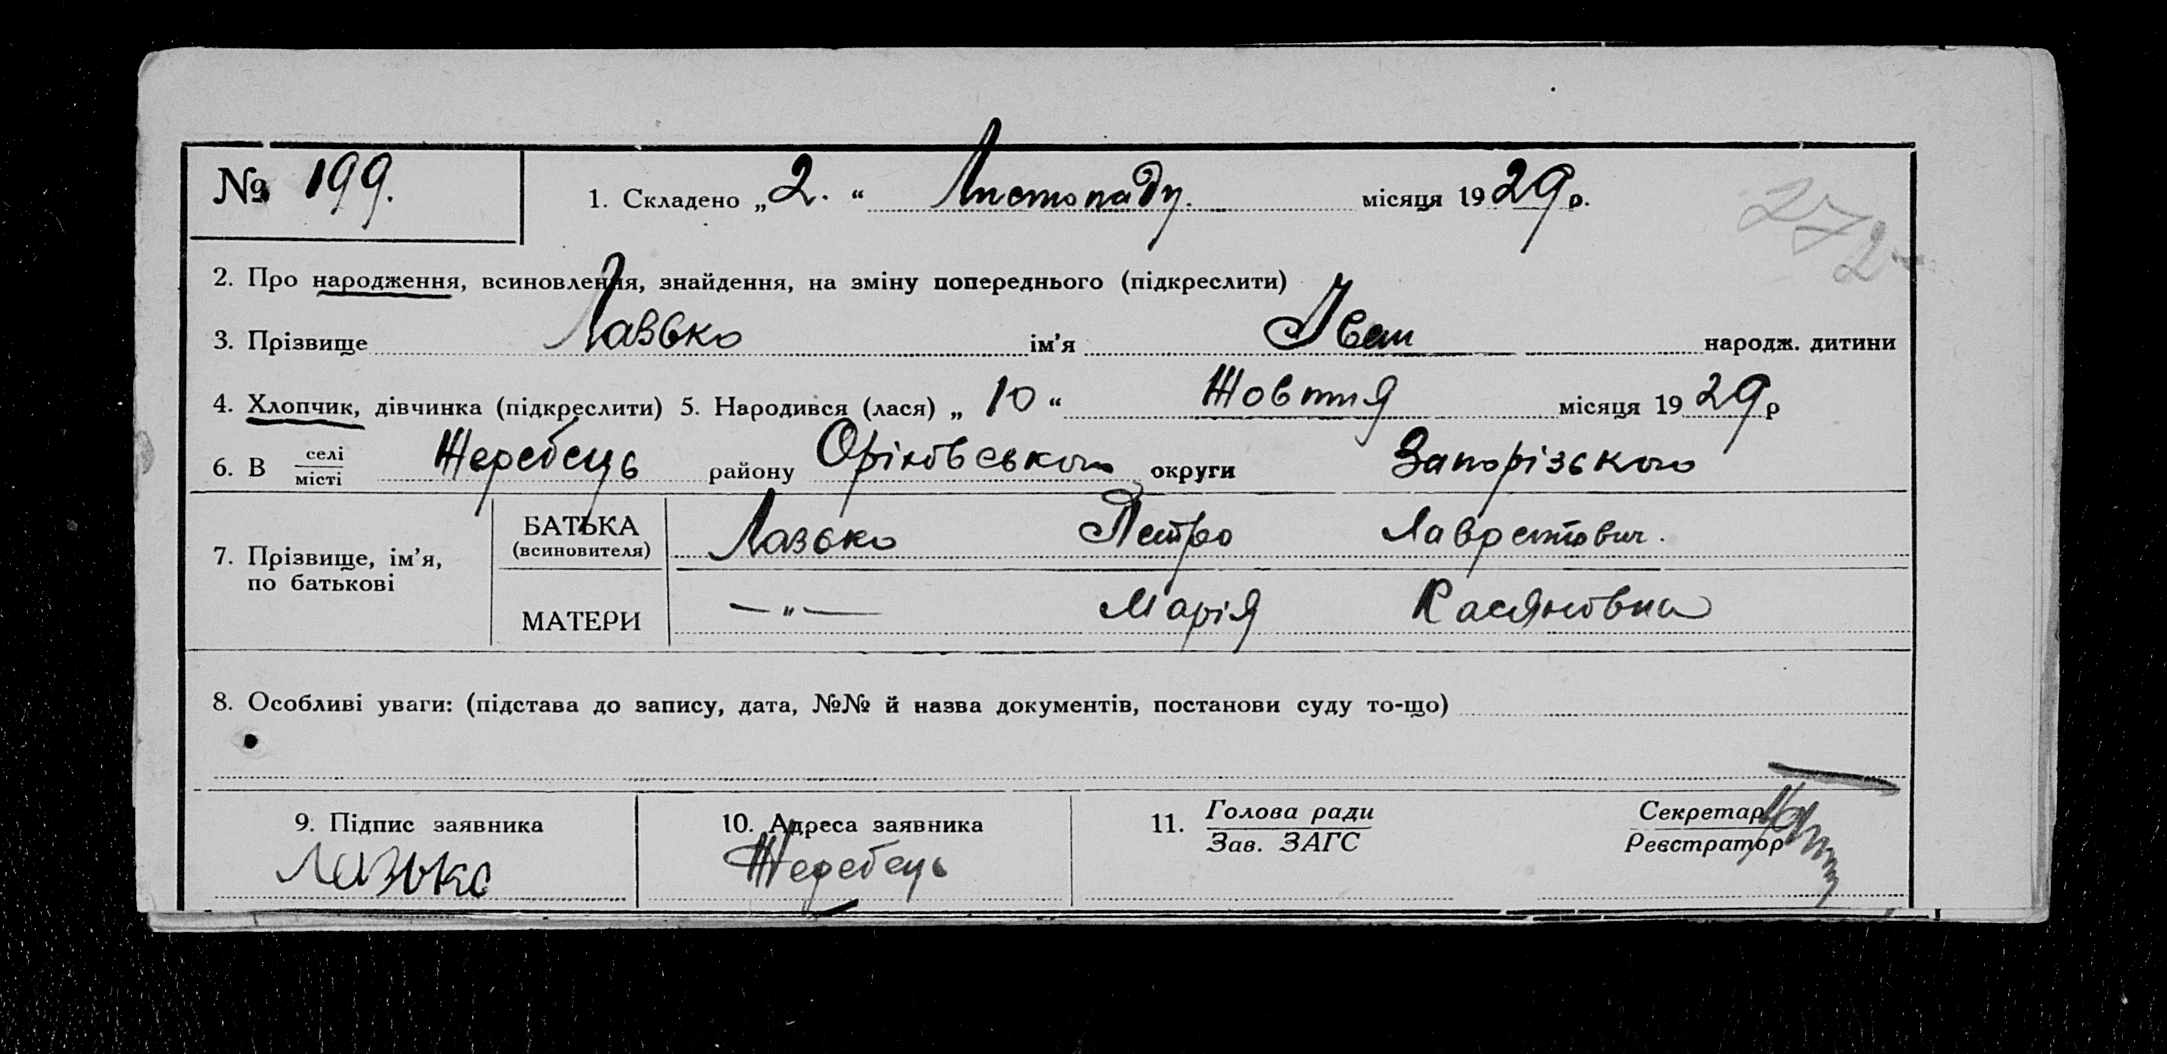 № 199. 1. Складено „2.“ Листопаду. місяця 1929 р.
272
2. Про народження, всиновлення, знайдення, на зміну попереднього (підкреслити)
3. Прізвище Лазько ім’я Іван народж. дитини
4. Хлопчик, дівчинка (підкреслити) 5. Народився (лася) „10“ Жовтня місяця 1929 р
6. В селі/місті Жеребець району Оріхівського округи Запорізького
7. Прізвище, ім’я, по батькові
БАТЬКА (всиновителя) Лазько Петро Лаврентович.
МАТЕРИ —„— Марія Касяновна
8. Особливі уваги: (підстава до запису, дата, №№ й назва документів, постанови суду то-що)
9. Підпис заявника 10. Адреса заявника 11. Голова ради Секретар
Зав. ЗАГС Реєстратор
Лазько Жеребець